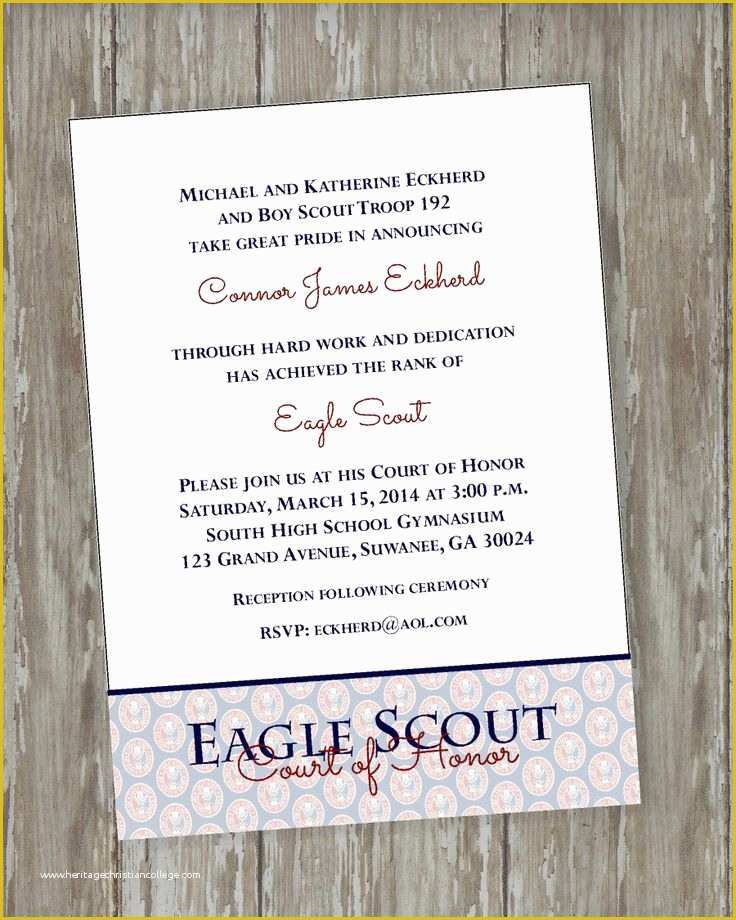 Michael and Katherine Eckherd
and Boy Scout Troop 192
take great pride in announcing
Connor James Eckherd
through hard work and dedication
has achieved the rank of
Eagle Scout
Please join us at his Court of Honor
Saturday, March 15, 2014 at 3:00 p.m.
South High School Gymnasium
123 Grand Avenue, Suwanee, GA 30024
Reception following ceremony
RSVP: eckherd@aol.com
Eagle Scout
Court of Honor
www.heritagechristiancollege.com